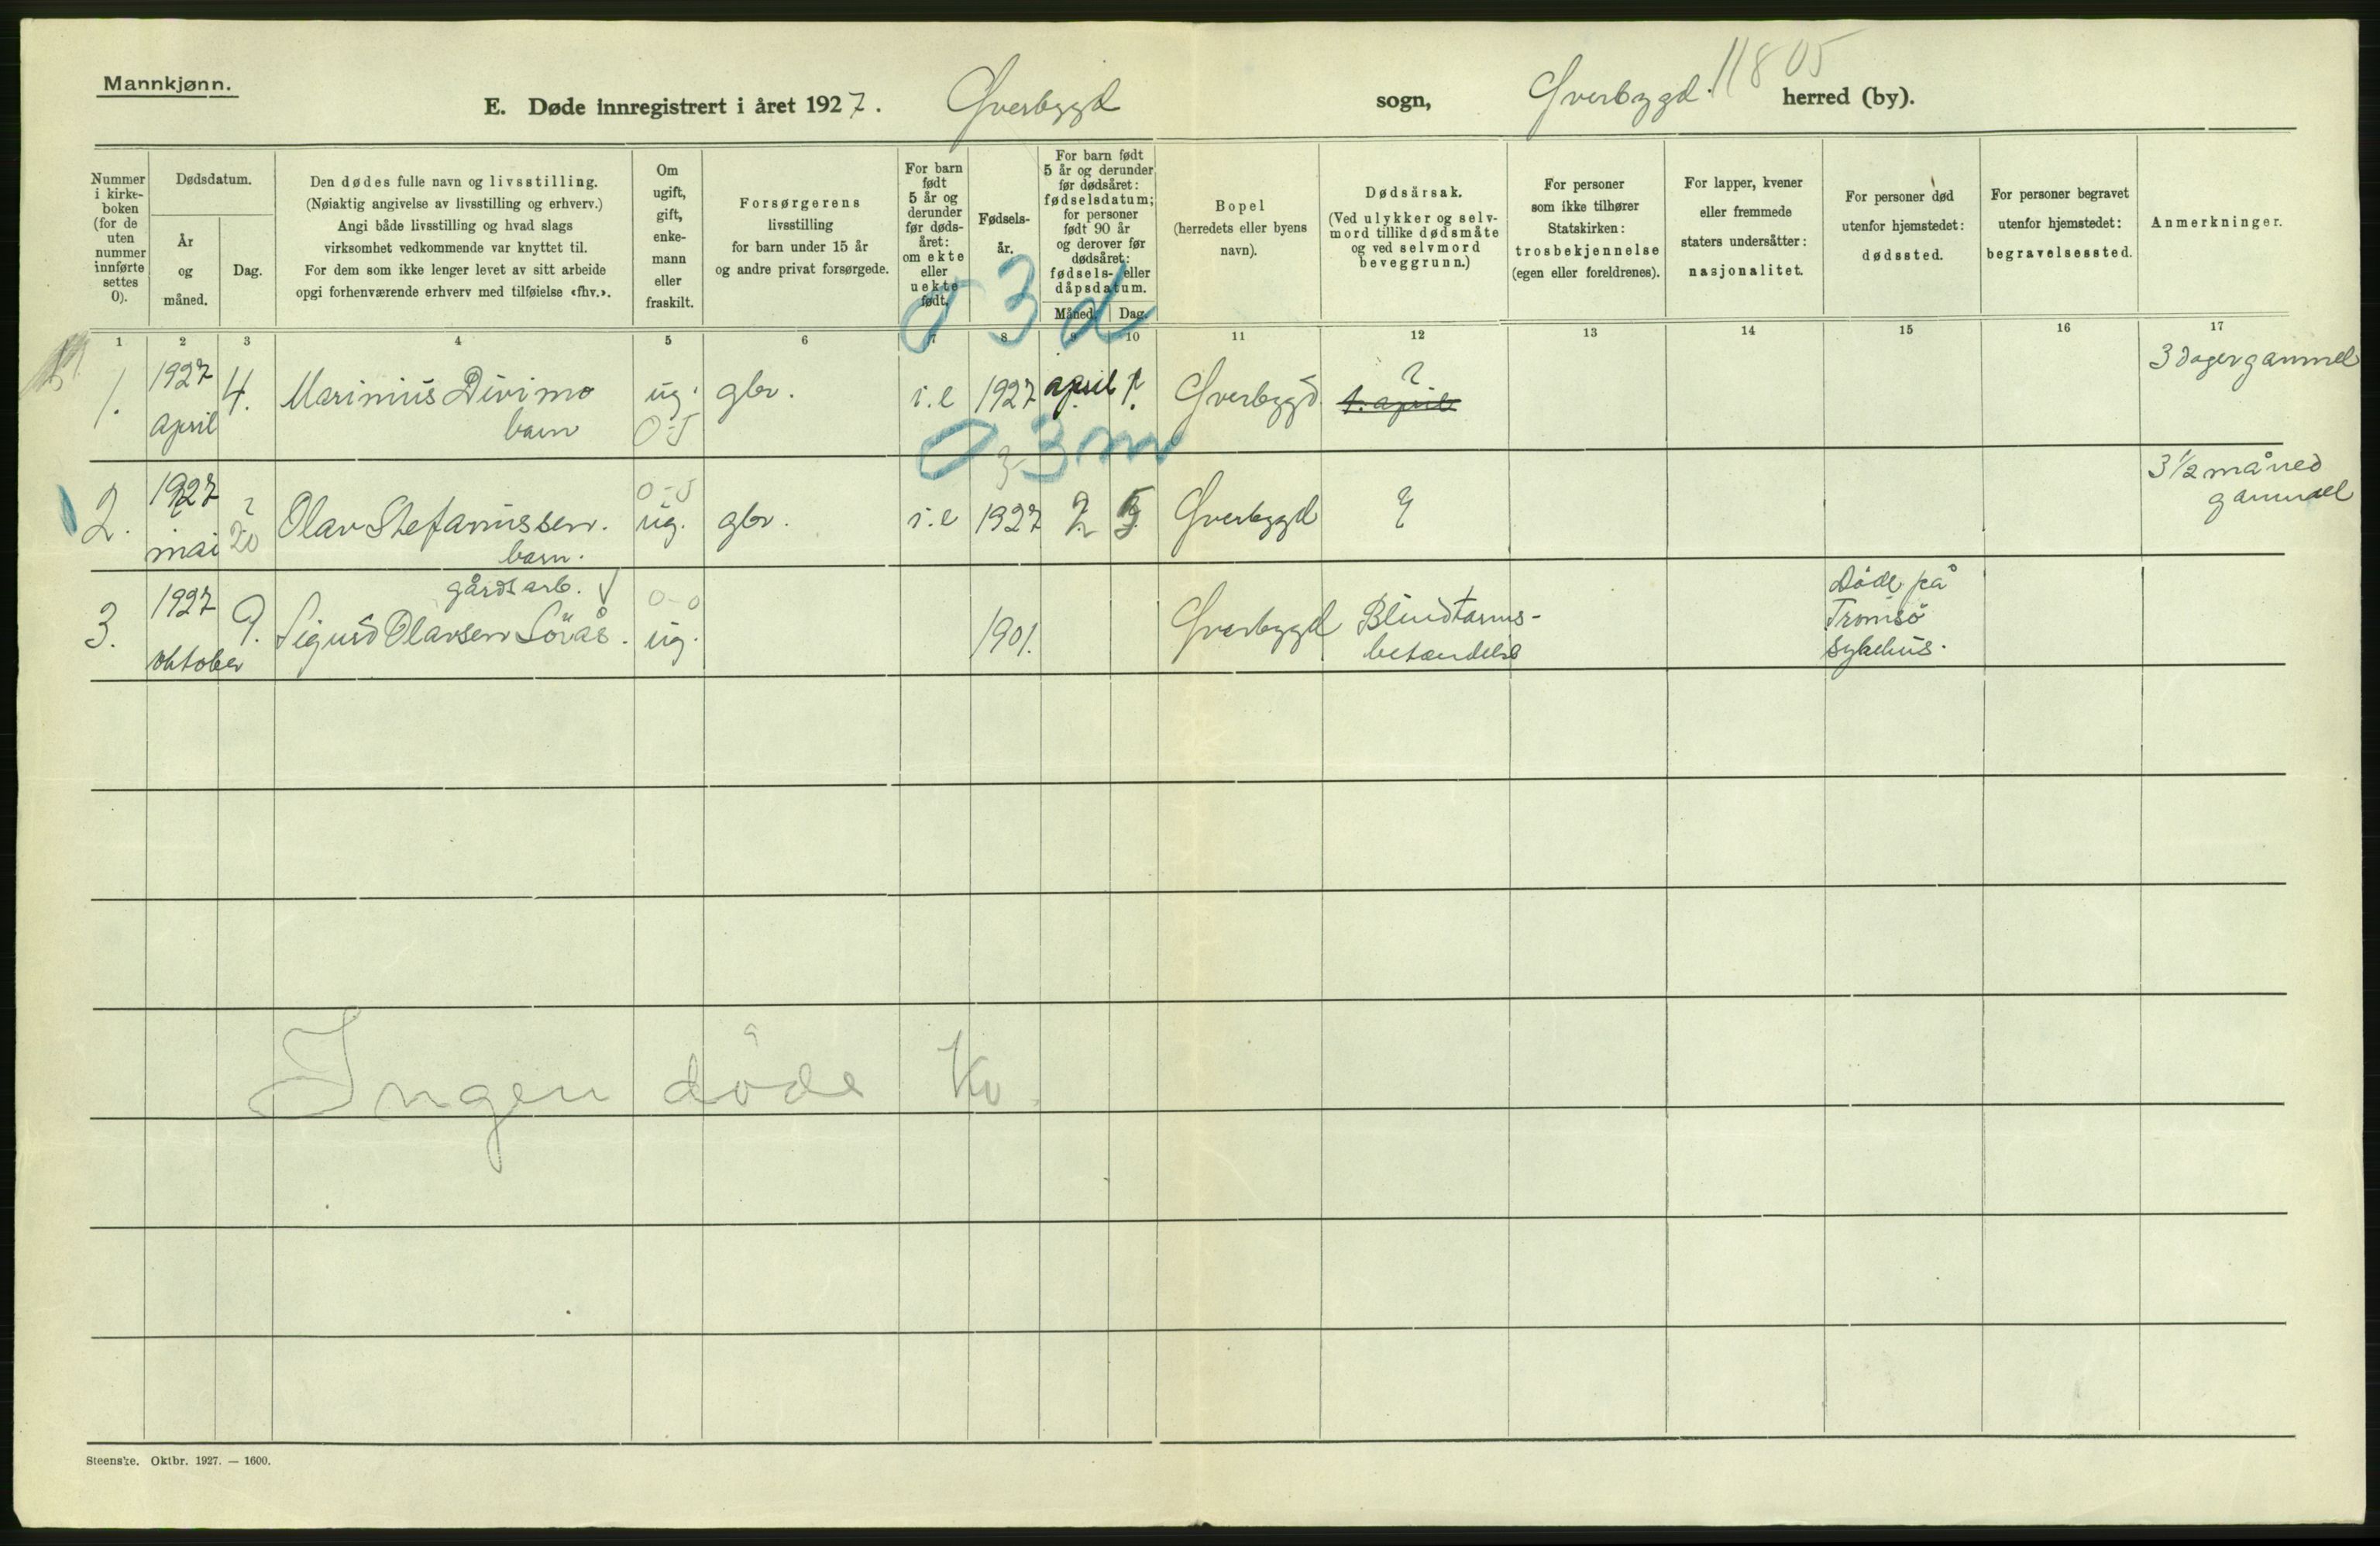 Mannkjønn.
E. Døde innregistrert i året 1927. Øverbygd sogn, Øverbygd. 11805 herred (by).
Nummer i kirke-boken (for de uten nummer innførte settes 0).
Dødsdatum.
År og måned.
Dag.
Den dødes fulle navn og livsstilling.
(Nøiaktig angivelse av livsstilling og erhverv.)
Angi både livsstilling og hvad slags
virksomhet vedkommende var knyttet til.
For dem som ikke lenger levet av sitt arbeide
opgi forhenværende erhverv med tilføielse «fhv.».
Om ugift, gift, enke-mann eller fraskilt.
Forsørgerens
livsstilling
for barn under 15 år
og andre privat forsørgede.
For barn født 5 år og derunder før døds-året: om ekte eller uekte født.
Fødsels-år.
For barn født 5 år og derunder før dødsåret: fødselsdatum; for personer født 90 år og derover før dødsåret: fødsels- eller dåpsdatum.
Måned.
Dag.
Bopel
(herredets eller byens
navn).
Dødsårsak.
(Ved ulykker og selv-
mord tillike dødsmåte
og ved selvmord
beveggrunn.)
For personer
som ikke tilhører
Statskirken:
trosbekjennelse
(egen eller foreldrenes).
For lapper, kvener
eller fremmede
staters undersåtter:
nasjonalitet.
For personer død
utenfor hjemstedet:
dødssted.
For personer begravet
utenfor hjemstedet:
begravelsessted.
Anmerkninger.
0 3 d
1 2 3 4 5 6 7 8 9 10 11 12 13 14 15 16 17
1. 1927 april 4. Marinius Divimo barn ug. 0-5 gbr. i.e 1927 april 1. Øverbygd. ? 1. april 3 dager gammel
0 3 m
2. 1927 mai ? 20 Olav Stefanussen. barn. 0-5 ug. gbr. i.e 1927 2 5 Øverbygd ? 3 1/2 måned gammel
3. 1927 oktober 9. gårdsarb. Sigurd Olavsen Löväs. 0-0 ug. 1901. Øverbygd Blindtarms-betændelse Døde på Tromsö sykehus.
Ingen døde Kv.
Steenske. Oktbr. 1927. — 1600.